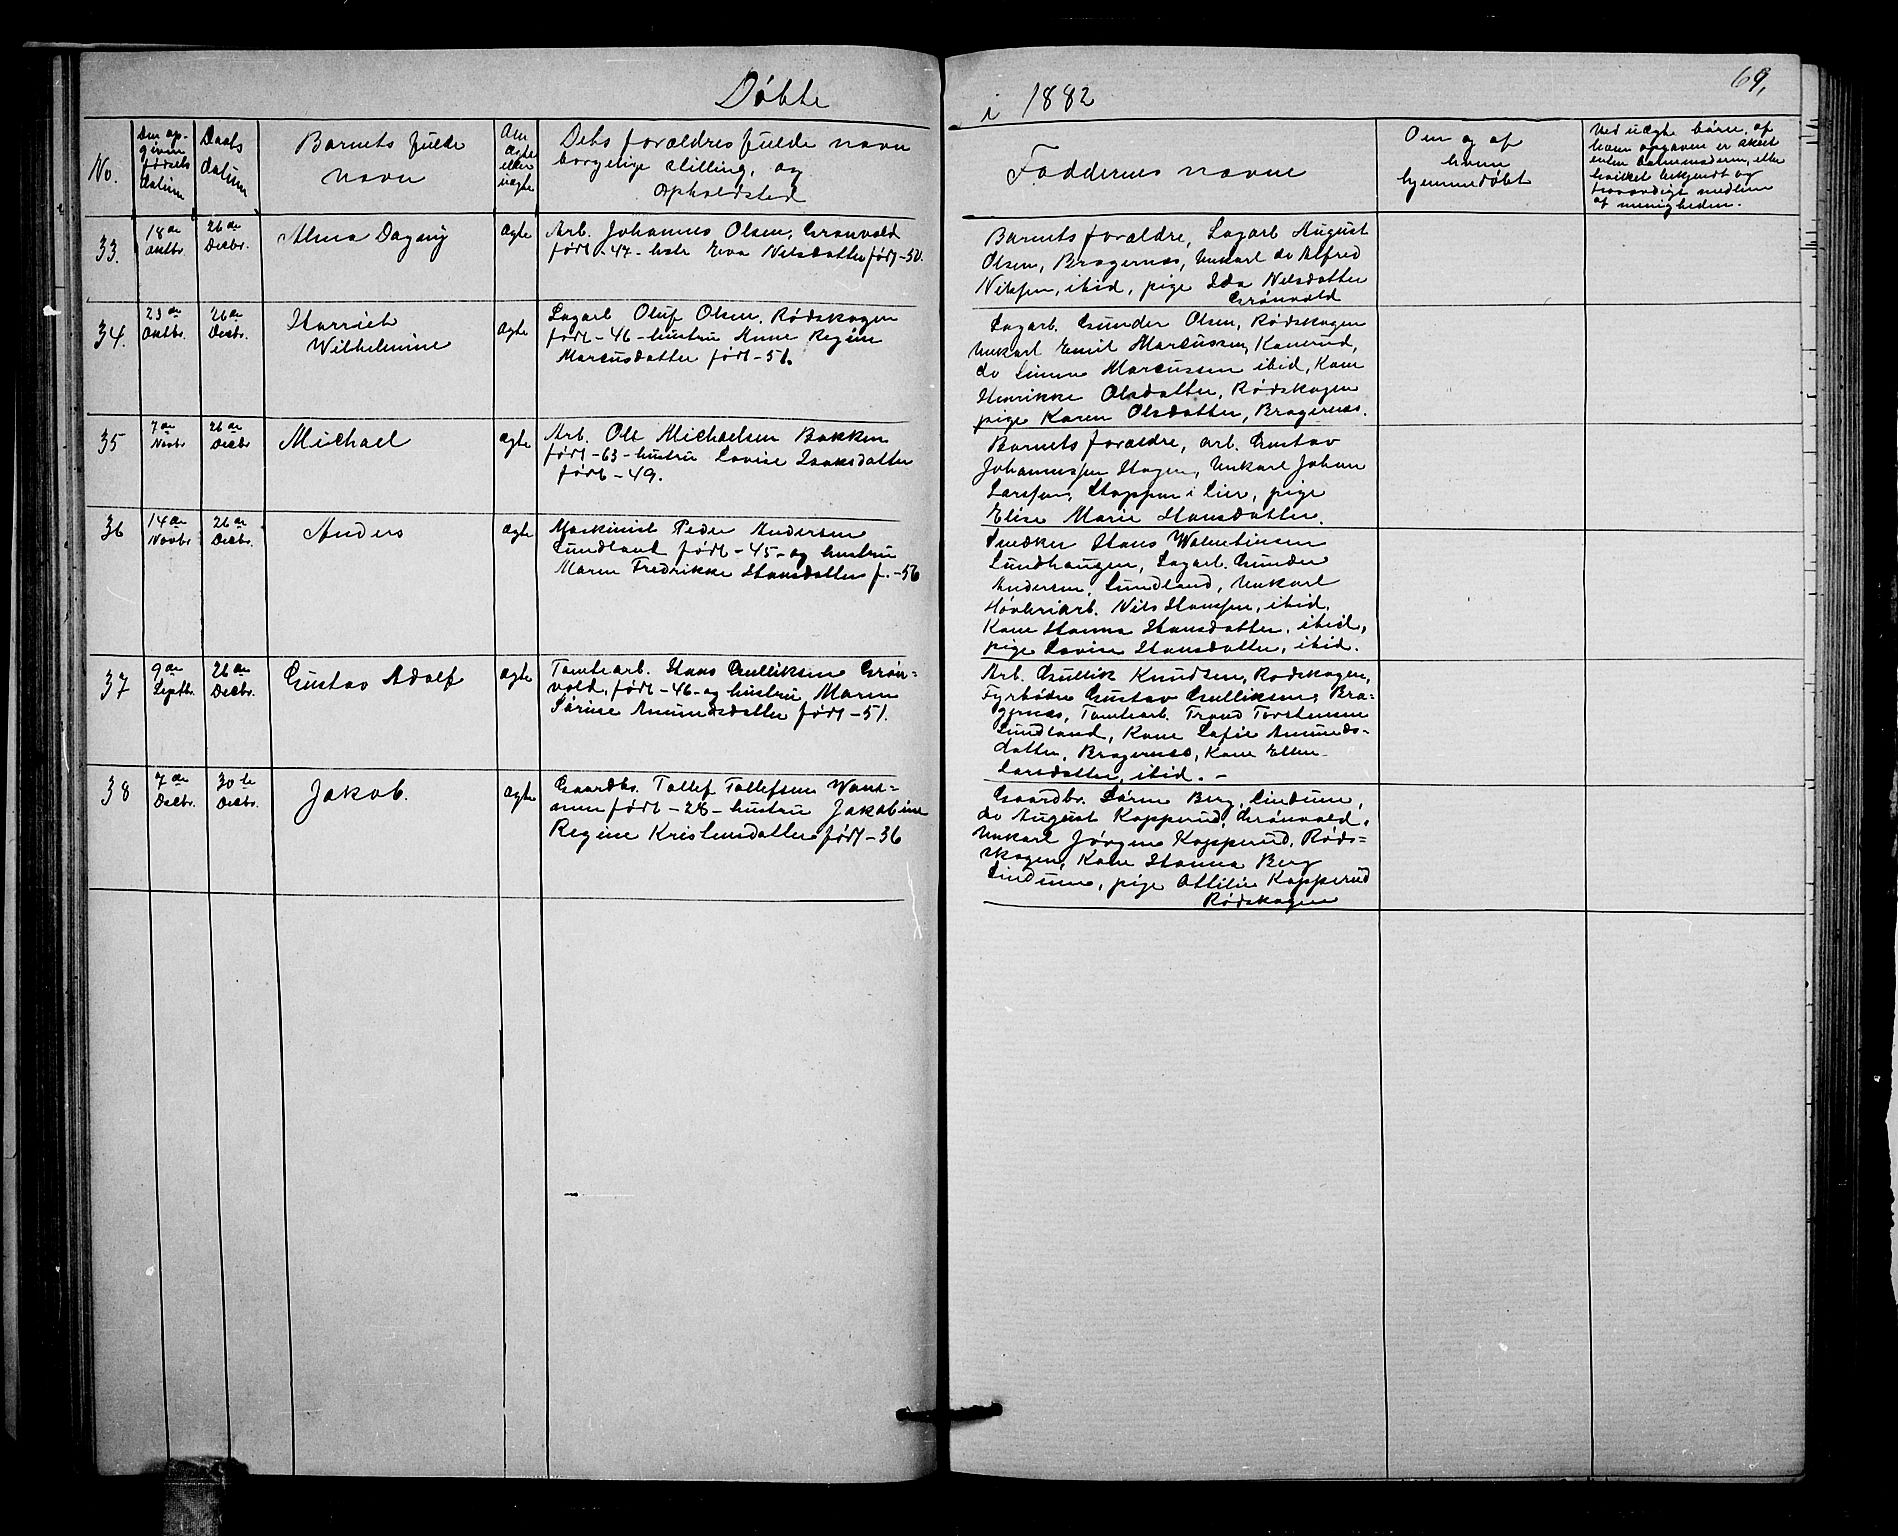 Døbte
i 1882
69,
No.
Den op-
givne
fødsels
datum
Daabs
datum
Barnets fulde
navn
Om
ægte
eller
uægte
Dets forældres fulde navn
borgelige stilling, og
opholdsted
Faddernes navne
Om og af
hvem
hjemmedøbt
Ved uægte børn, af
hvem opgaven er skeet
enten barnemoderen, eller
hvilket bekjendt og
troværdigt medlem
af menigheden.
33.
18de
Octbr.
26de
Decbr.
Alma Dagny
ægte
Arb. Johannes Olsen, Grønvold
født -47- hstr Eva Nilsdatter født -50.
Barnets forældre, Sagarb August
Olsen, Bragernæs, Unkarl do Alfred
Nilssen, ibid, pige Ida Nilsdatter
Grønvold
34.
23de
Octbr.
26de
Decbr.
Harriet
Wilhelmine
ægte
Sagarb Oluf Olsen, Rødskogen
født -46- hustru Anne Regine
Marcusdatter født -51.
Sagarb. Gunder Olsen, Rødskogen
Unkarl Emil Marcussen, Kanerud,
do Simen Marcussen ibid, Kone
Henrikke Olsdatter, Rødskogen
pige Karen Olsdatter, Bragernæs.
35
7de
Novbr.
26de
Decbr.
Michael
ægte
Arb. Ole Michaelsen Bakken
født -63- hustru Lovise Isaksdatter
født -49.
Barnets forældre, arb. Gustav
Johannessen Hagen, Unkarl Johan
Larssen, Stoppen i Lier, pige
Elise Marie Hansdatter.
36
14de
Novbr.
26de
Decbr.
Anders
ægte
Maskinist Peder Andersen
Sundland født -45- og hustru
Maren Fredrikke Hansdatter f. -56
Snedker Hans Walentinsen
Sundhaugen, Sagarb. Gunder
Andersen, Sundland, Unkarl
Høvleriarb. Nils Hanssen, ibid,
Kone Hanna Hansdatter, ibid,
pige Lovise Hansdatter, ibid.
37
9de
Septbr.
26de
Decbr.
Gustav Adolf
ægte
Tomtearb. Hans Gulliksen Grøn-
vold, født -46- og hustru Maren
Sørine Amundsdatter født -51.
Arb. Gullik Knudsen, Rødskogen,
Fyrbøder Gustav Gulliksen, Bra-
gernæs, Tomtearb. Trond Torstensen
Sundland, Kone Sofie Amunds-
datter, Bragernæs, Kone Ellen
Larsdatter, ibid. -
38
7de
Decbr.
30te
Decbr.
Jakob.
ægte
Gaardbr. Tollef Tollefsen
født -28- hustru Jakobine
Regine Kristensdatter født -36
Gaardbr. Søren Berg, Lindum,
do August Kopperud, Grønvold,
Unkarl Jørgen Kopperud, Røds-
skogen, Kone Hanna Berg
Lindum, pige Ottilie Kopperud
Rødskogen